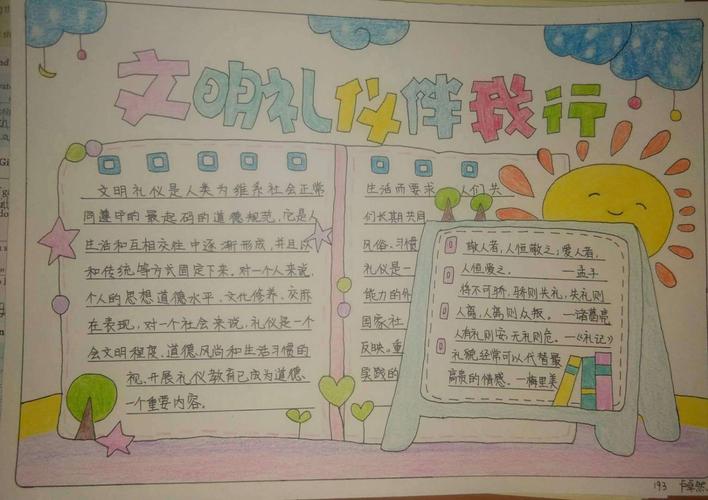 文明礼仪伴我行
文明礼仪是人类为维系社会正常
同遵守的最起码的道德规范,它是人
生活和互相交往中逐渐形成,并且以
和传统等方式固定下来。对一个人来说,
个人的思想道德水平、文化修养、交际
在表现,对一个社会来说,礼仪是一个
会文明程度、道德风尚和生活习惯的
视、开展礼仪教育已成为道德、
一个重要内容。
生活而要求 人们共
们长期共同
风俗、习惯
礼仪是一
能力的外
国家社
反映。重
实践的
敬人者,人恒敬之;爱人者,
人恒爱之。 —孟子
将不可骄,骄则失礼,失礼则
人离,人离则众叛。 —诸葛亮
人有礼则安,无礼则危。—《礼记》
礼貌经常可以代替最
高贵的情感。—梅里美
193 卡卓然